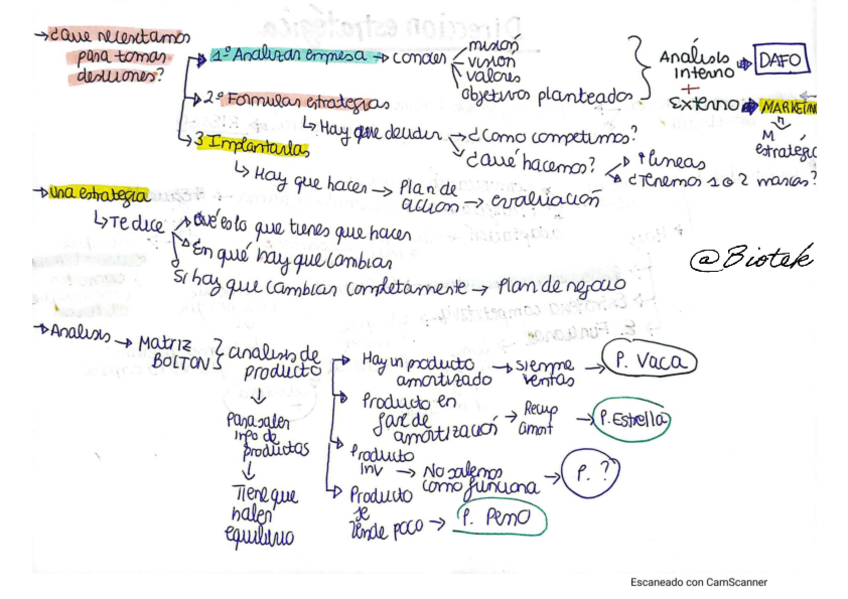 → ¿Que necesitamos
para tomar
desiones?
1º Analizar empresa → conocer
misión
visión
valores
objetivos planteados
Análisis
interno
+
Externo
DAFO
MARKETING
M
estratégic
2º Formular estrategias
↳ Hay que decidir → ¿Como competimos?
¿Qué hacemos?
1 líneas
¿Tenemos 1 o 2 marcas?
3 Implantarlas
↳ Hay que hacer → Plan de
acción → evaluación
→ una estrategia
↳ Te dice → Qué es lo que tienes que hacer
En qué hay que cambiar
Si hay que cambiar completamente → Plan de negocio
@Biotek
→ Analisis → MATRIZ
BOLTON
analisis de
producto
↓
Para saber
info de
productos
↓
Tiene que
haber
equilibrio
Hay un producto
amortizado → siempre
ventas → P. Vaca
Producto en
fase de
amortización → Recup
amort → P. Estrella
Producto
inv → No sabemos
como funciona → P. ?
Producto
se
vende poco → P. Perro
Escaneado con CamScanner